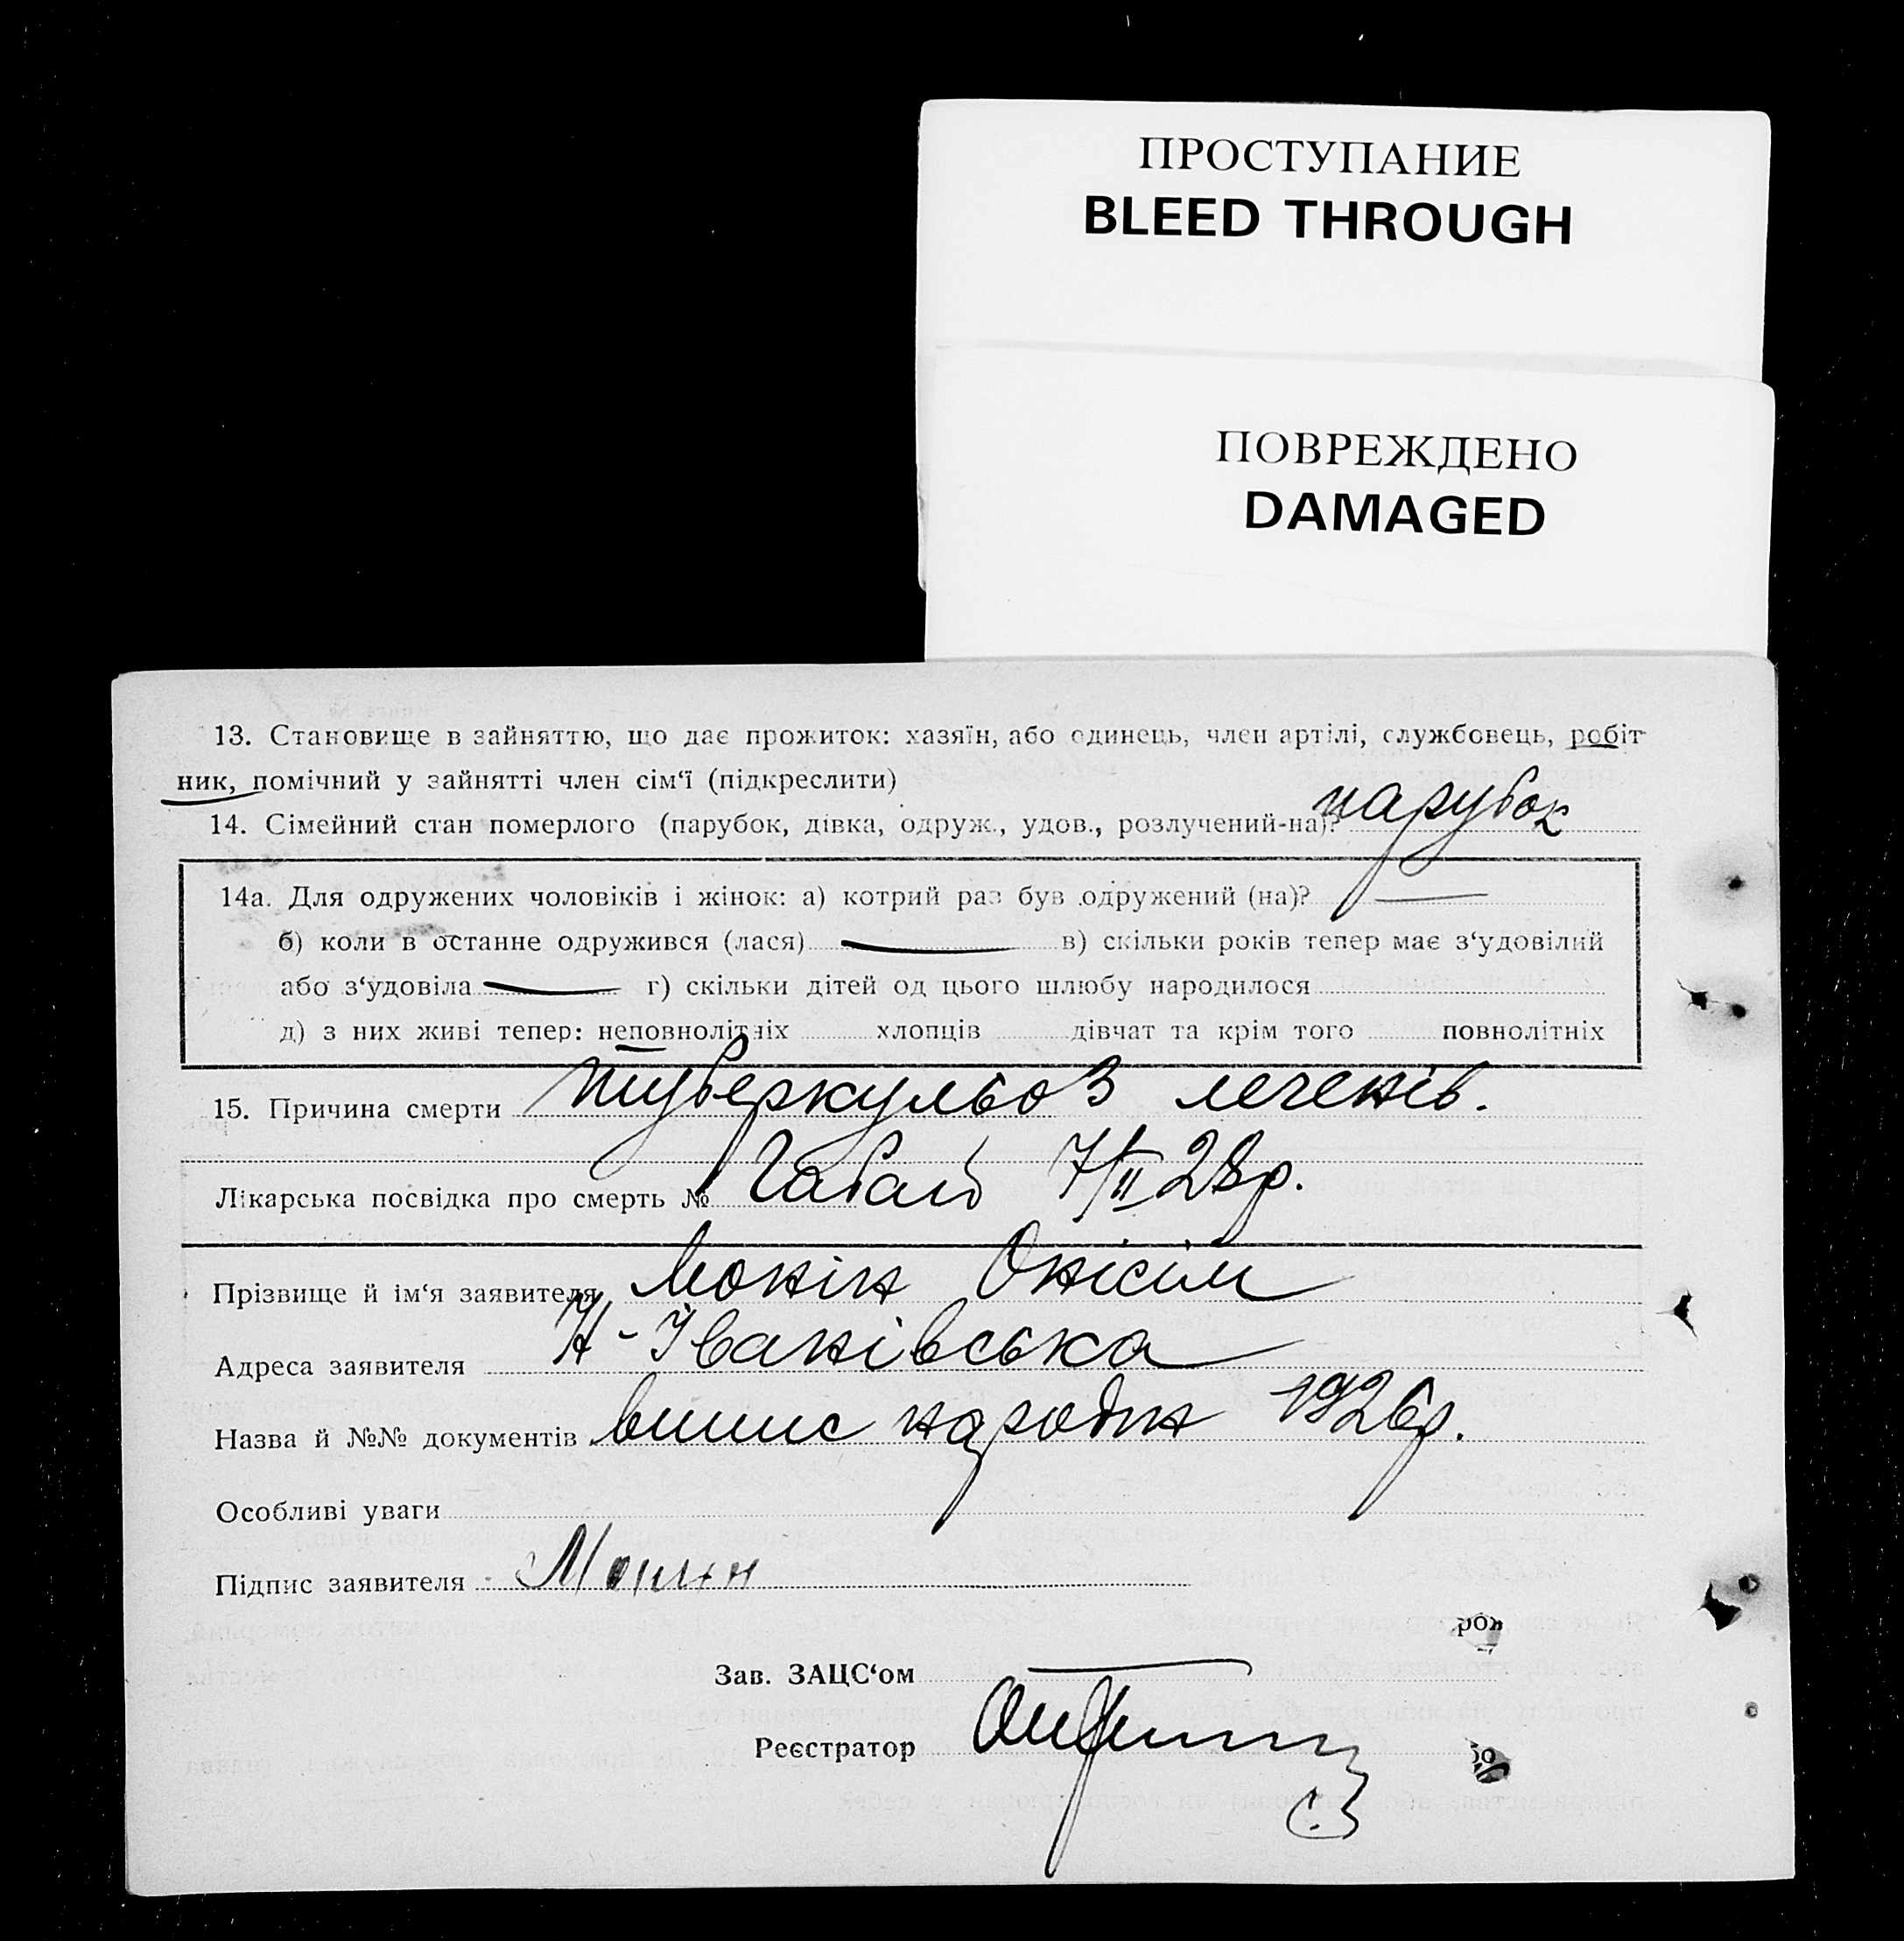 ПРОСТУПАНИЕ
BLEED THROUGH
ПОВРЕЖДЕНО
DAMAGED
13. Становище в зайняттю, що дає прожиток: хазяїн, або одинець, член артілі, службовець, робіт-
ник, помічний у зайнятті член сім‘ї (підкреслити)
14. Сімейний стан померлого (парубок, дівка, одруж., удов., розлучений-на)? парубок
14а. Для одружених чоловіків і жінок: а) котрий раз був одружений (на)? —
б) коли в останне одружився (лася) — в) скільки років тепер має з‘удовілий
або з‘удовіла — г) скільки дітей од цього шлюбу народилося
д) з них живі тепер: неповнолітніх хлопців дівчат та крім того повнолітніх
15. Причина смерти туберкульоз легенів.
Лікарська посвідка про смерть № 7/II 28р.
Прізвище й ім‘я заявителя Монін Онісім
Адреса заявителя Н-Іванівська
Назва й №№ документів випис народж 1926р.
Особливі уваги
Підпис заявителя Монин
рок
Зав. ЗАЦС‘ом —
Реєстратор